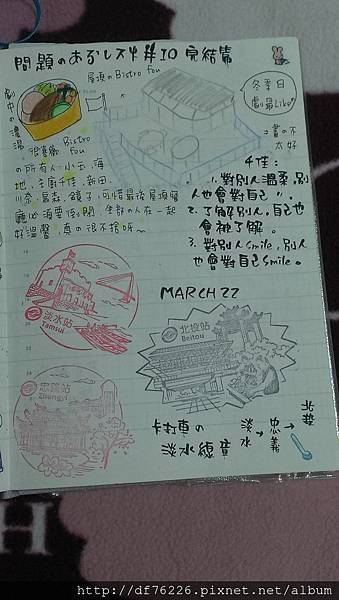 問題のあるレストラン #10 完結篇
屋頂的Bistro fou
冬季日
劇最Like
畫的不
太好
劇中的濃湯
很喜歡 Bistro
fou
的所有人,小玉,海
地,主廚千佳,新田,
川奈,晶森,鏡子,可惜最後屋頂餐
廳必須要收了,全部的人在一起
好溫馨,真の很不捨呀~
千佳:
1.對別人溫柔,別
人也會對自己〃。
2.了解別人,自己也
會被了解。
3.對別人smile,別人
也會對自己smile。
MARCH 22
淡水站
Tamsui
北投站
Beitou
忠義站
Zhongyi
卡打車の
淡水線章
淡水→忠義→北投
http://df76226.pixnet.net/album